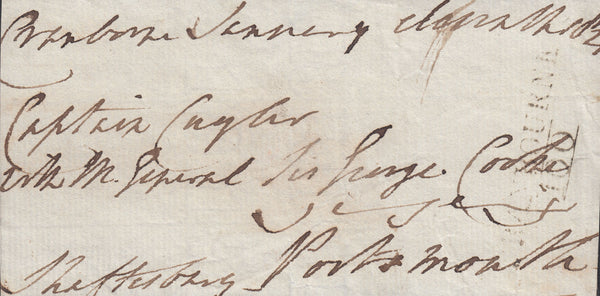 Cranborne January eleventh 182
Captain Cuyler
with M. General Sir George Cooke
Shaftesbury Portsmouth
BOURNE
100